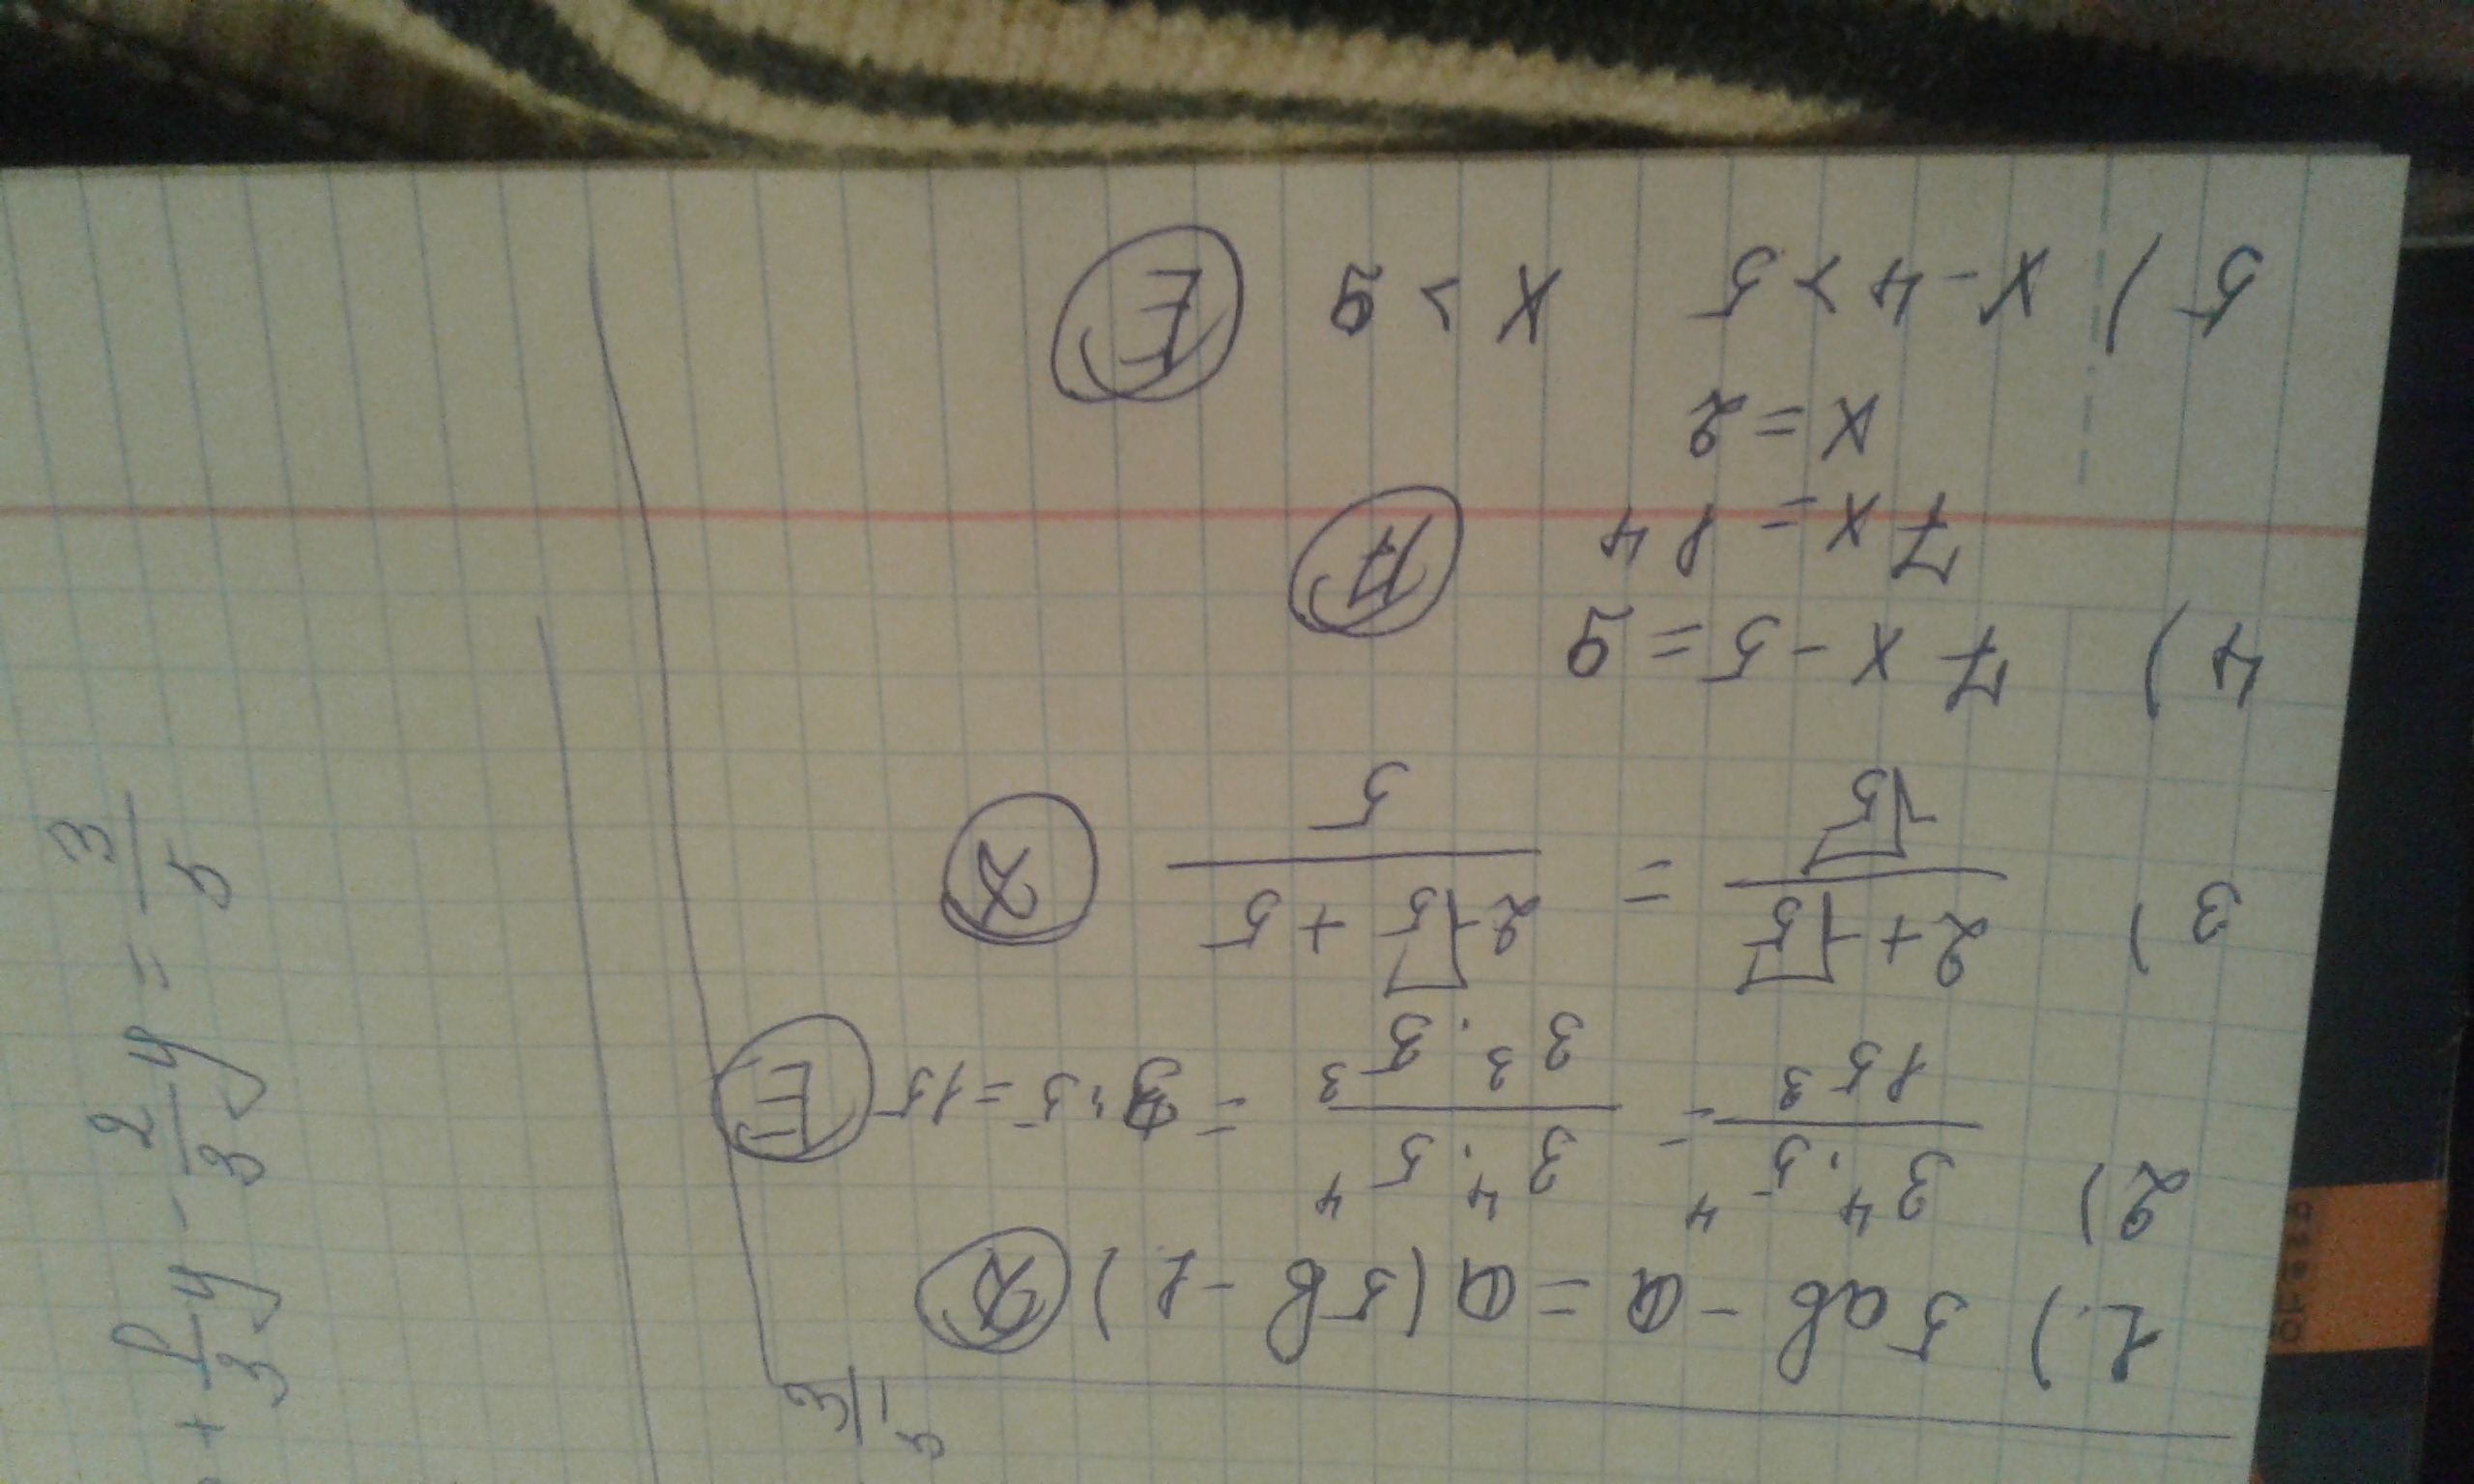 1.) 5ab - a = a(5b - 1)
2) 3⁴·5⁴/15³ = 3⁴·5⁴/3³·5³ = 3·5 = 15 E
3) 2+√5/√5 = 2√5+5/5
4) 7x - 5 = 9
7x = 14 A
x = 2
5) x - 4 > 5 x > 9 E
+ 1/3 y - 2/3 y = 3/5